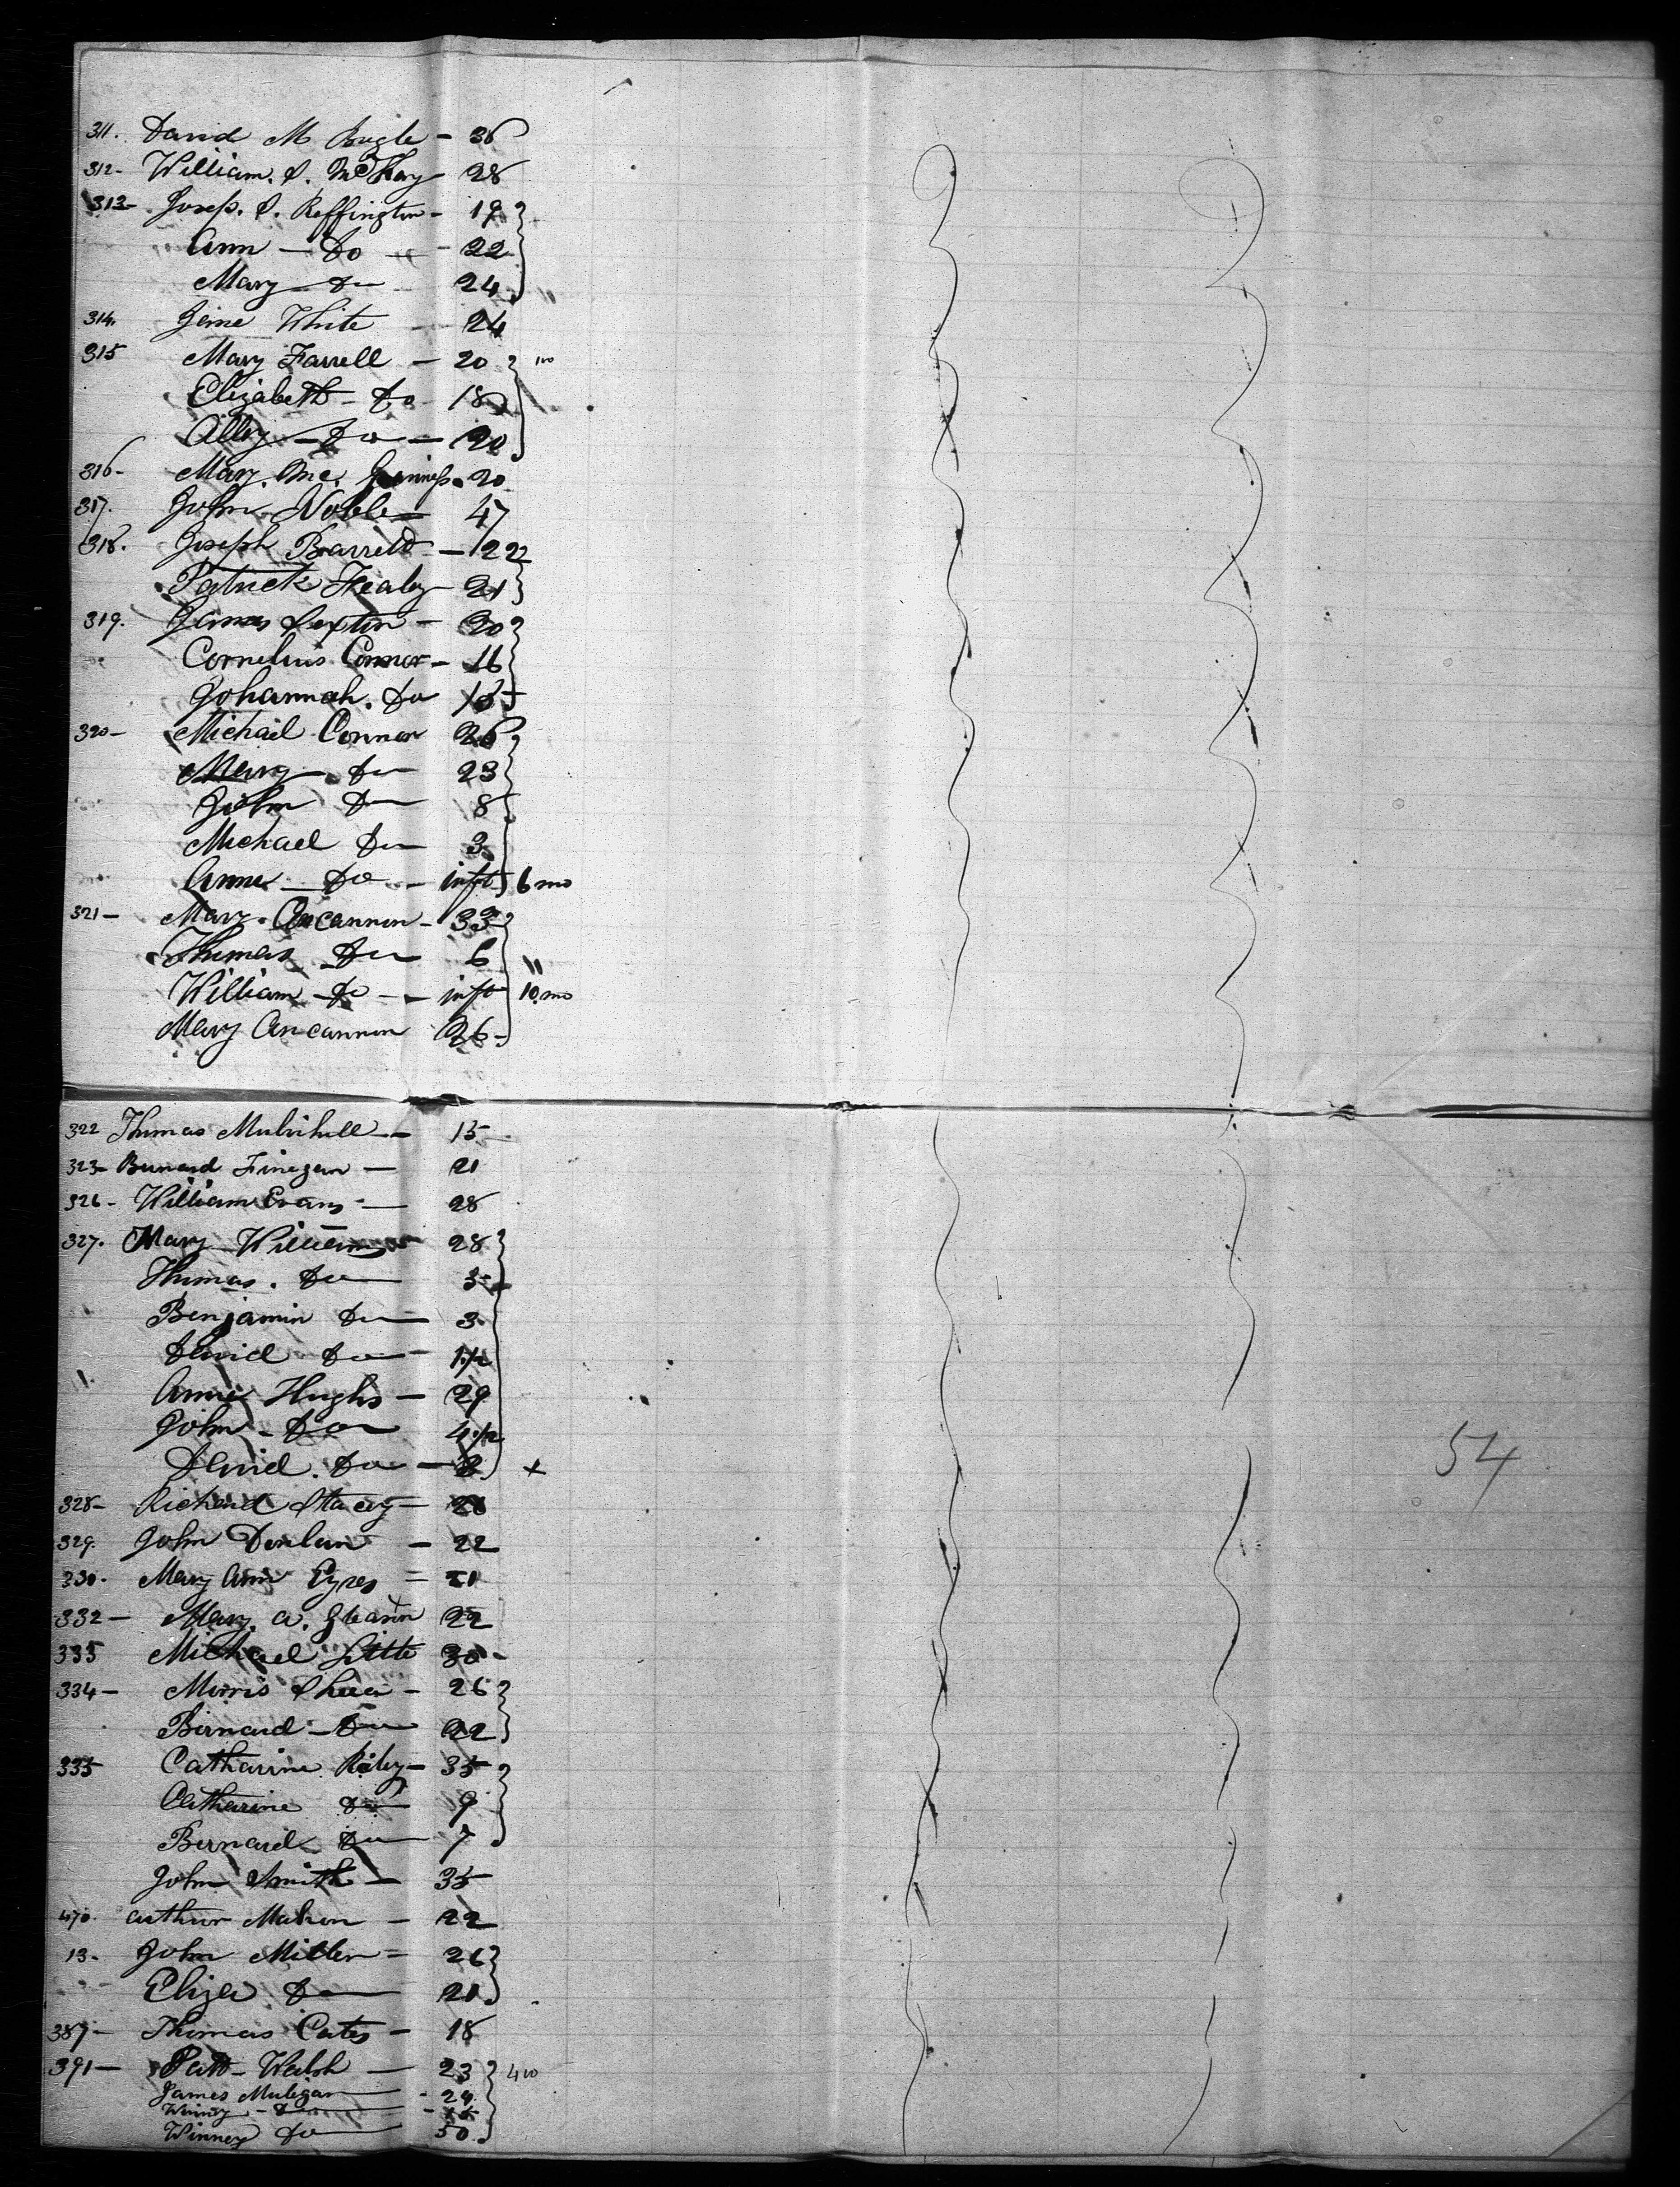 311. David M Bugle - 36
312- William. S. McKay 28
313- Josep. S. Reffington - 19
Ann - Do - 22
Mary Do 24
314. Jane White - 24
315 Mary Farrell - 20
Elizabeth - Do 18
Alley - Do - 20
316- Mary. Mc. Ginness. 20
317. John Noble - 47
318. Joseph Barrett - 22
Patrick Healey - 21
319. James Sexton - 20
Cornelius Connor - 16
Johannah. Do
320- Michail Connor 26
Mary Do 23
John Do 8
Michael Do 3
Anne - Do - inft 6 mo
321- Mary Ancannon - 33
Thomas Do 6
William - Do - inft 10 mo
Mary Ancannon 26-
322 Thomas Mulvihill - 15
323- Bernard Finegan - 21
326- William Evans - 28
327. Mary Williams 28
Thomas. Do 5
Benjamin Do 3
David Do 1 1/2
Anne Hughs - 29
John - Do 4 1/2
David. Do - x
328- Richard Stacey -
329. John Donlan - 22
330. Mary Ann Eyres - 21
332- Mary. A. Gleason 22
333 Michael Little 30-
334- Morris Shea - 26
Birnard - Do 22
335 Catharine Riley - 35
Catharine Do 9
Bernard Do 7
John Smith - 35
470. Arthur Mahon - 22
13. John Miller - 26
Eliza Do 21
387- Thomas Cates - 18
391- Patt - Walsh - 23
James Muligan - 24
Winny - Do
Winney Do 50
54